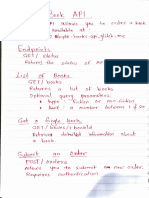 Book API
API allows you to order a book
available at
Endpoints
GET / status
Returns the status of API
List of Books
GET / books
Returns a list of books
Optional query parameters
type: fiction or non-fiction
limit: a number between 1 &
Get a single book
GET / books / bookId
Retrieve detailed information about
a book
Submit an order
POST / orders
Allows you to submit a new order.
Requires authentication